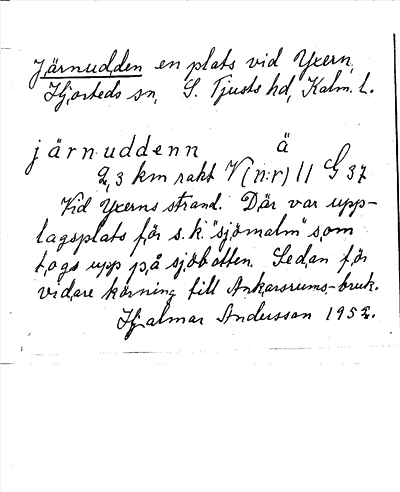 Järnudden en plats vid Yxern,
Hjorteds sn, S. Tjusts hd, Kalm. L.
järnuddenn ä
2,3 km rakt V (n:r) 11 G 37
Vid Yxerns strand. Där var upp-
lagsplats för s.k. "sjömalm" som
togs upp på sjöbotten. Sedan för
vidare körning till Ankarsrums-bruk.
Hjalmar Andersson 1952.